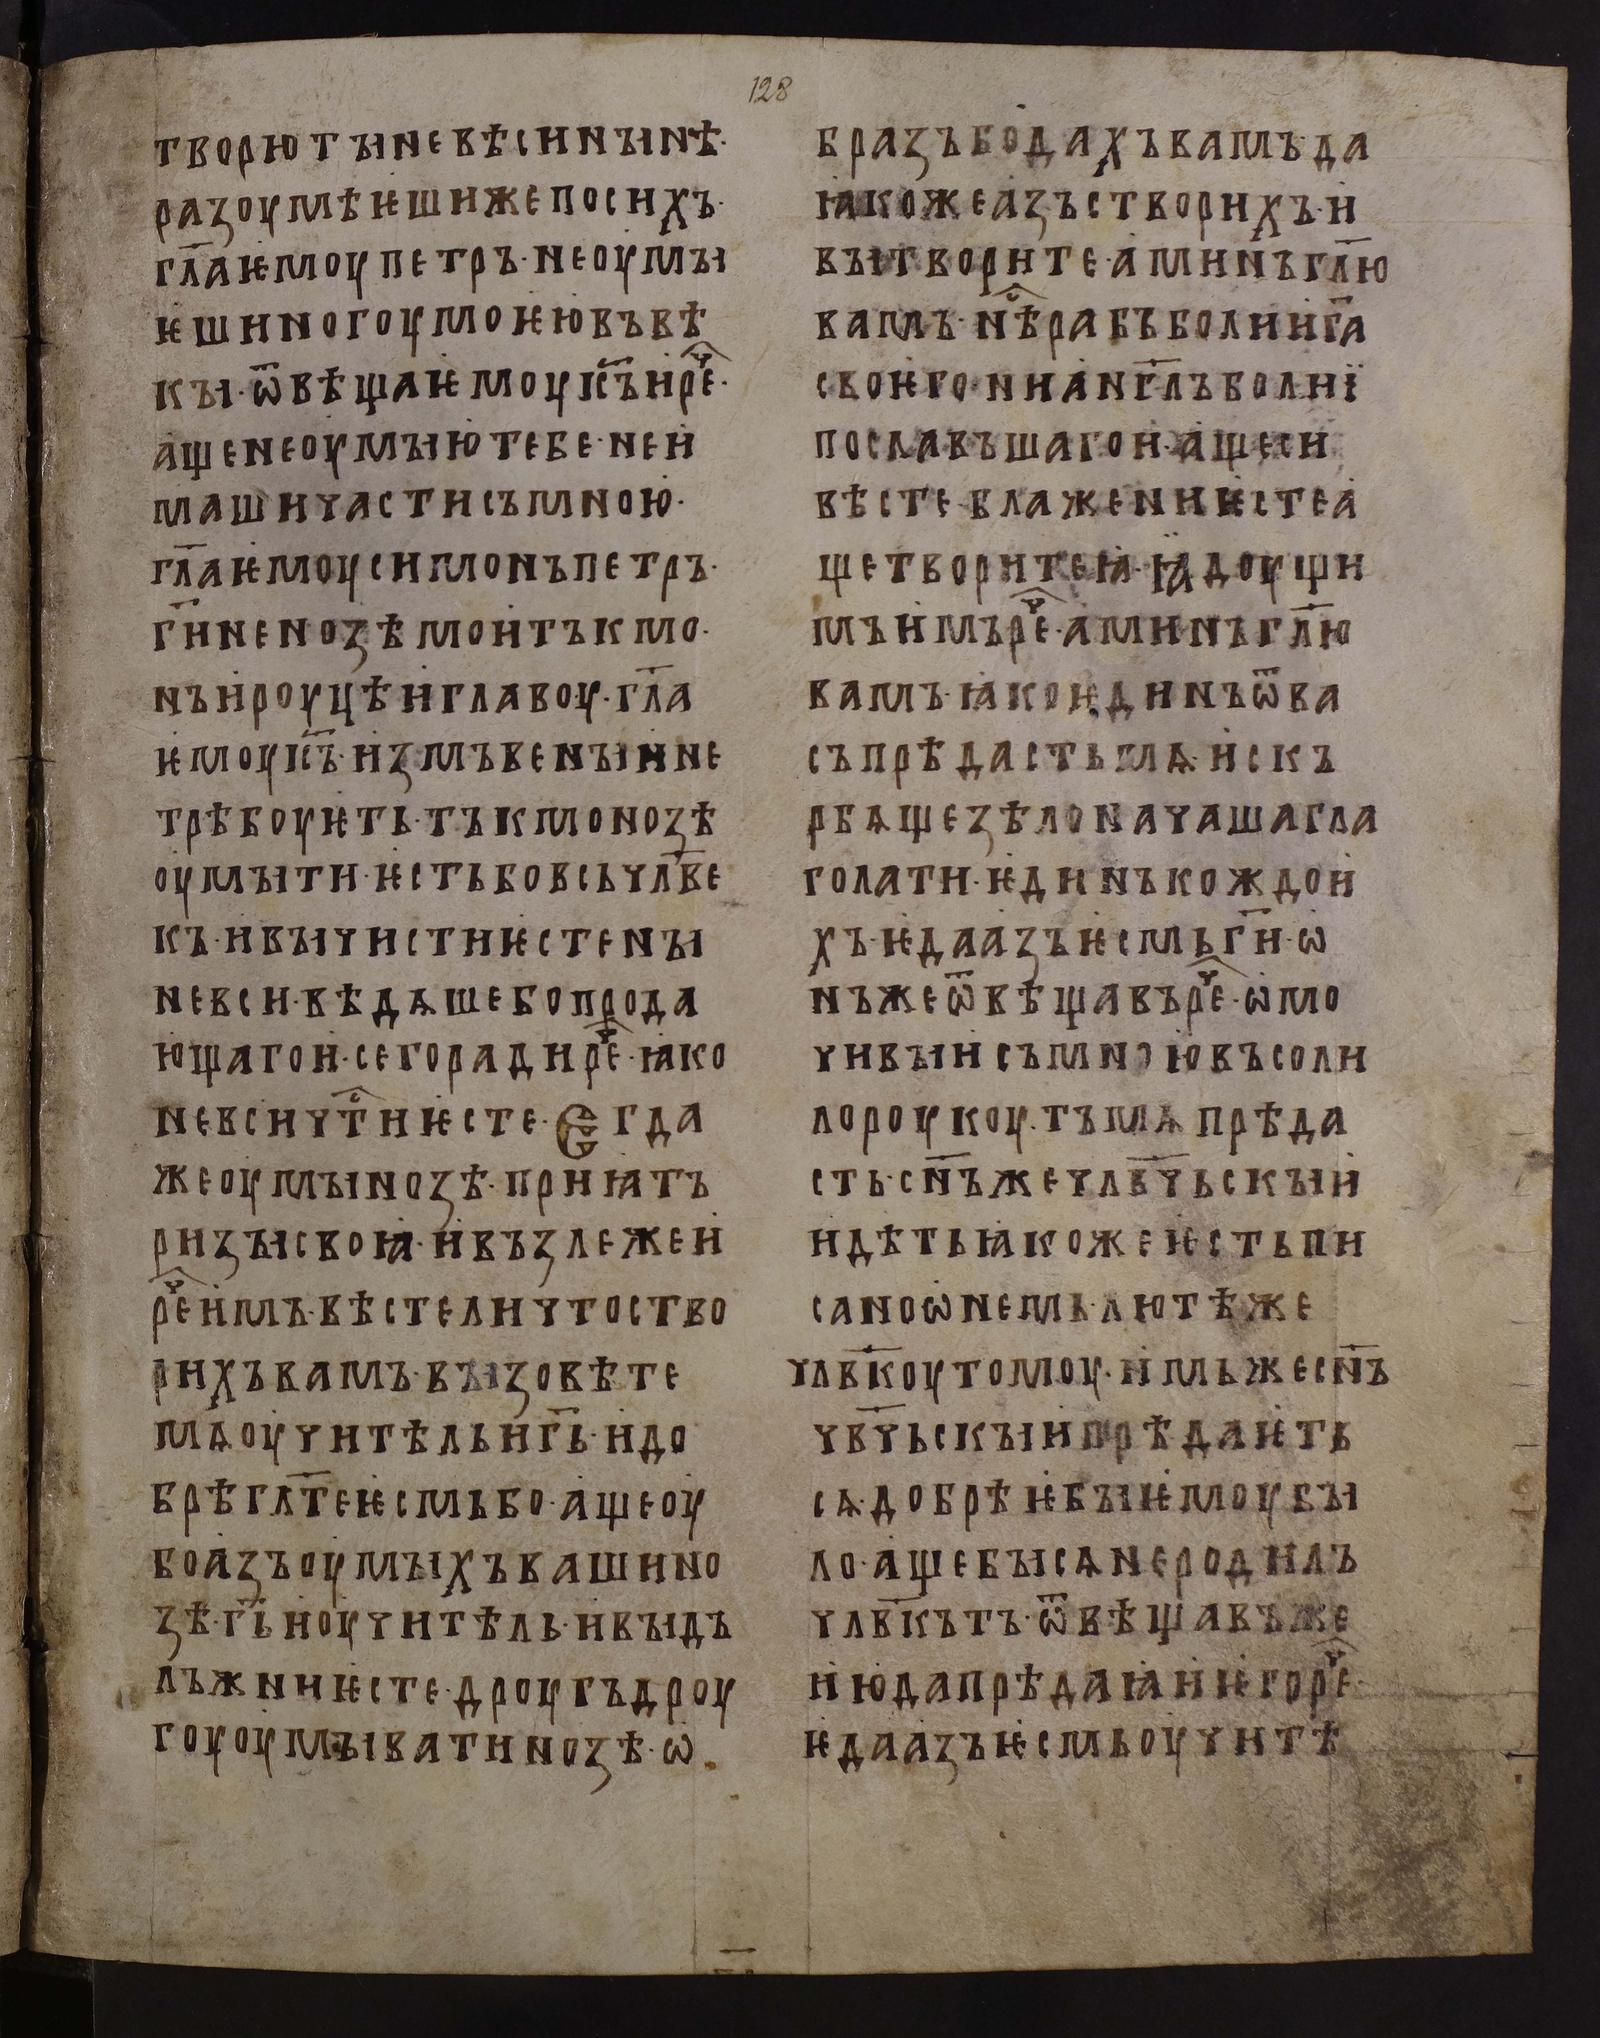 128
творю ты не вѣси нынѣ·
разоумѣѥши же по сихъ·
гл҃а ѥмоу петръ· не оумы
ѥши ногоу моѥю въ вѣ
кы· ѿвѣща ѥмоу і҃съ и реⷱ҇·
аще не оумыю тебе· не и
маши части съ мною·
гл҃а ѥмоу симонъ петръ·
г҃и не нозѣ мои тъкмо·
нъ и роуцѣ и главоу· гл҃а
ѥмоу і҃съ· измъвеныи не
трѣбоуѥть· тъкмо нозѣ
оумыти· ѥсть бо вьсь чл҃ве
къ· и вы чисти ѥсте нъ
не вси· вѣдѧше бо прода
ющагои· сего ради реⷱ҇· ꙗко
не вси чтⷭ҇и ѥсте· Егда
же оумы нозѣ· приꙗтъ
ризы своꙗ· и възлеже и
реⷱ҇ имъ· вѣсте ли что ство
рихъ вамъ· вы зовѣте
мѧ оучитѣль и г҃ь· и до
брѣ гл҃те ѥсмь бо· аще оу
бо азъ оумыхъ ваши но
зѣ· г҃ь и оучитѣль· и вы дъ
лъжни ѥсте· дроугъ дроу
гоу оумывати нозѣ· ѡ
бразъ бо дахъ вамъ да
ꙗкоже азъ створихъ· и
вы творите· аминъ гл҃ю
вамъ· нѣⷭ҇ рабъ болии г҃а
своѥго· ни ан҃глъ болиї
пославъшагои· аще си
вѣсте· блажени ѥсте а
ще творите ꙗ· ꙗдоущи
мъ имъ реⷱ҇· аминъ гл҃ю
вамъ· ꙗко ѥдинъ ѿ ва
съ прѣдасть мѧ· и скъ
рбѧще зѣло начаша гла
голати· ѥдинъ кождо и
хъ· ѥда азъ ѥсмь г҃и· ѡ
нъ же ѿвѣщавъ реⷱ҇· ѡмо
чивыи съ мною въ соли
ло роукоу· тъ мѧ прѣда
сть· с҃нъ же чл҃вч҃ьскыи
идѣть ꙗкоже ѥсть пи
сано ѡ немь· лютѣ же
чл҃вкоу томоу· имьже с҃нъ
ч҃вчьскыи прѣдаѥть
сѧ· добрѣѥ бы ѥмоу бы
ло· аще бы сѧ не родилъ
чл҃вкътъ· ѿвѣщавъ же
июда прѣдаꙗи ѥго реⷱ҇·
ѥда азъ ѥсмь оучитѣ